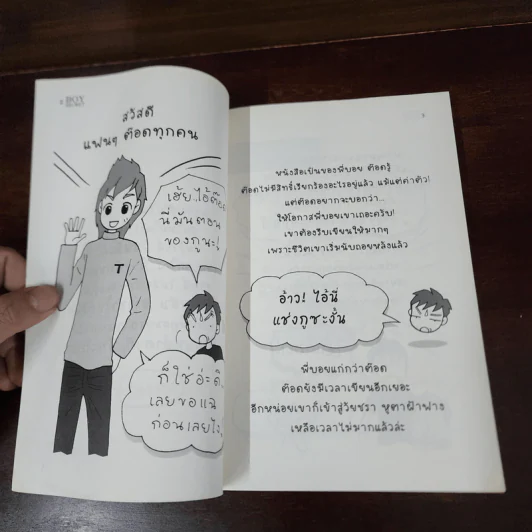 BOY
สวัสดี
แฟนๆ ต๊อดทุกคน
เฮ้ย ไอ้ต๊อด
นี่มันตอน
ของกูนะ!
T
ก็ใช่อ่ะดิ
เลยขอแจ
ก่อนเลยไง
หนังสือเป็นของพี่บอย ต๊อดรู้
ต๊อดไม่มีสิทธิ์เรียกร้องอะไรอยู่แล้ว แม้แต่ค่าตัว!
แต่ต๊อดอยากจะบอกว่า...
ให้โอกาสพี่บอยเขาเถอะครับ!
เขาต้องรีบเขียนให้มากๆ
เพราะชีวิตเขาเริ่มนับถอยหลังแล้ว
อ้าว! ไอ้นี่
แช่งกูซะงั้น
พี่บอยแก่กว่าต๊อด
ต๊อดยังมีเวลาเขียนอีกเยอะ
อีกหน่อยเขาก็เข้าสู่วัยชรา หูตาฝ้าฟาง
เหลือเวลาไม่มากแล้วล่ะ